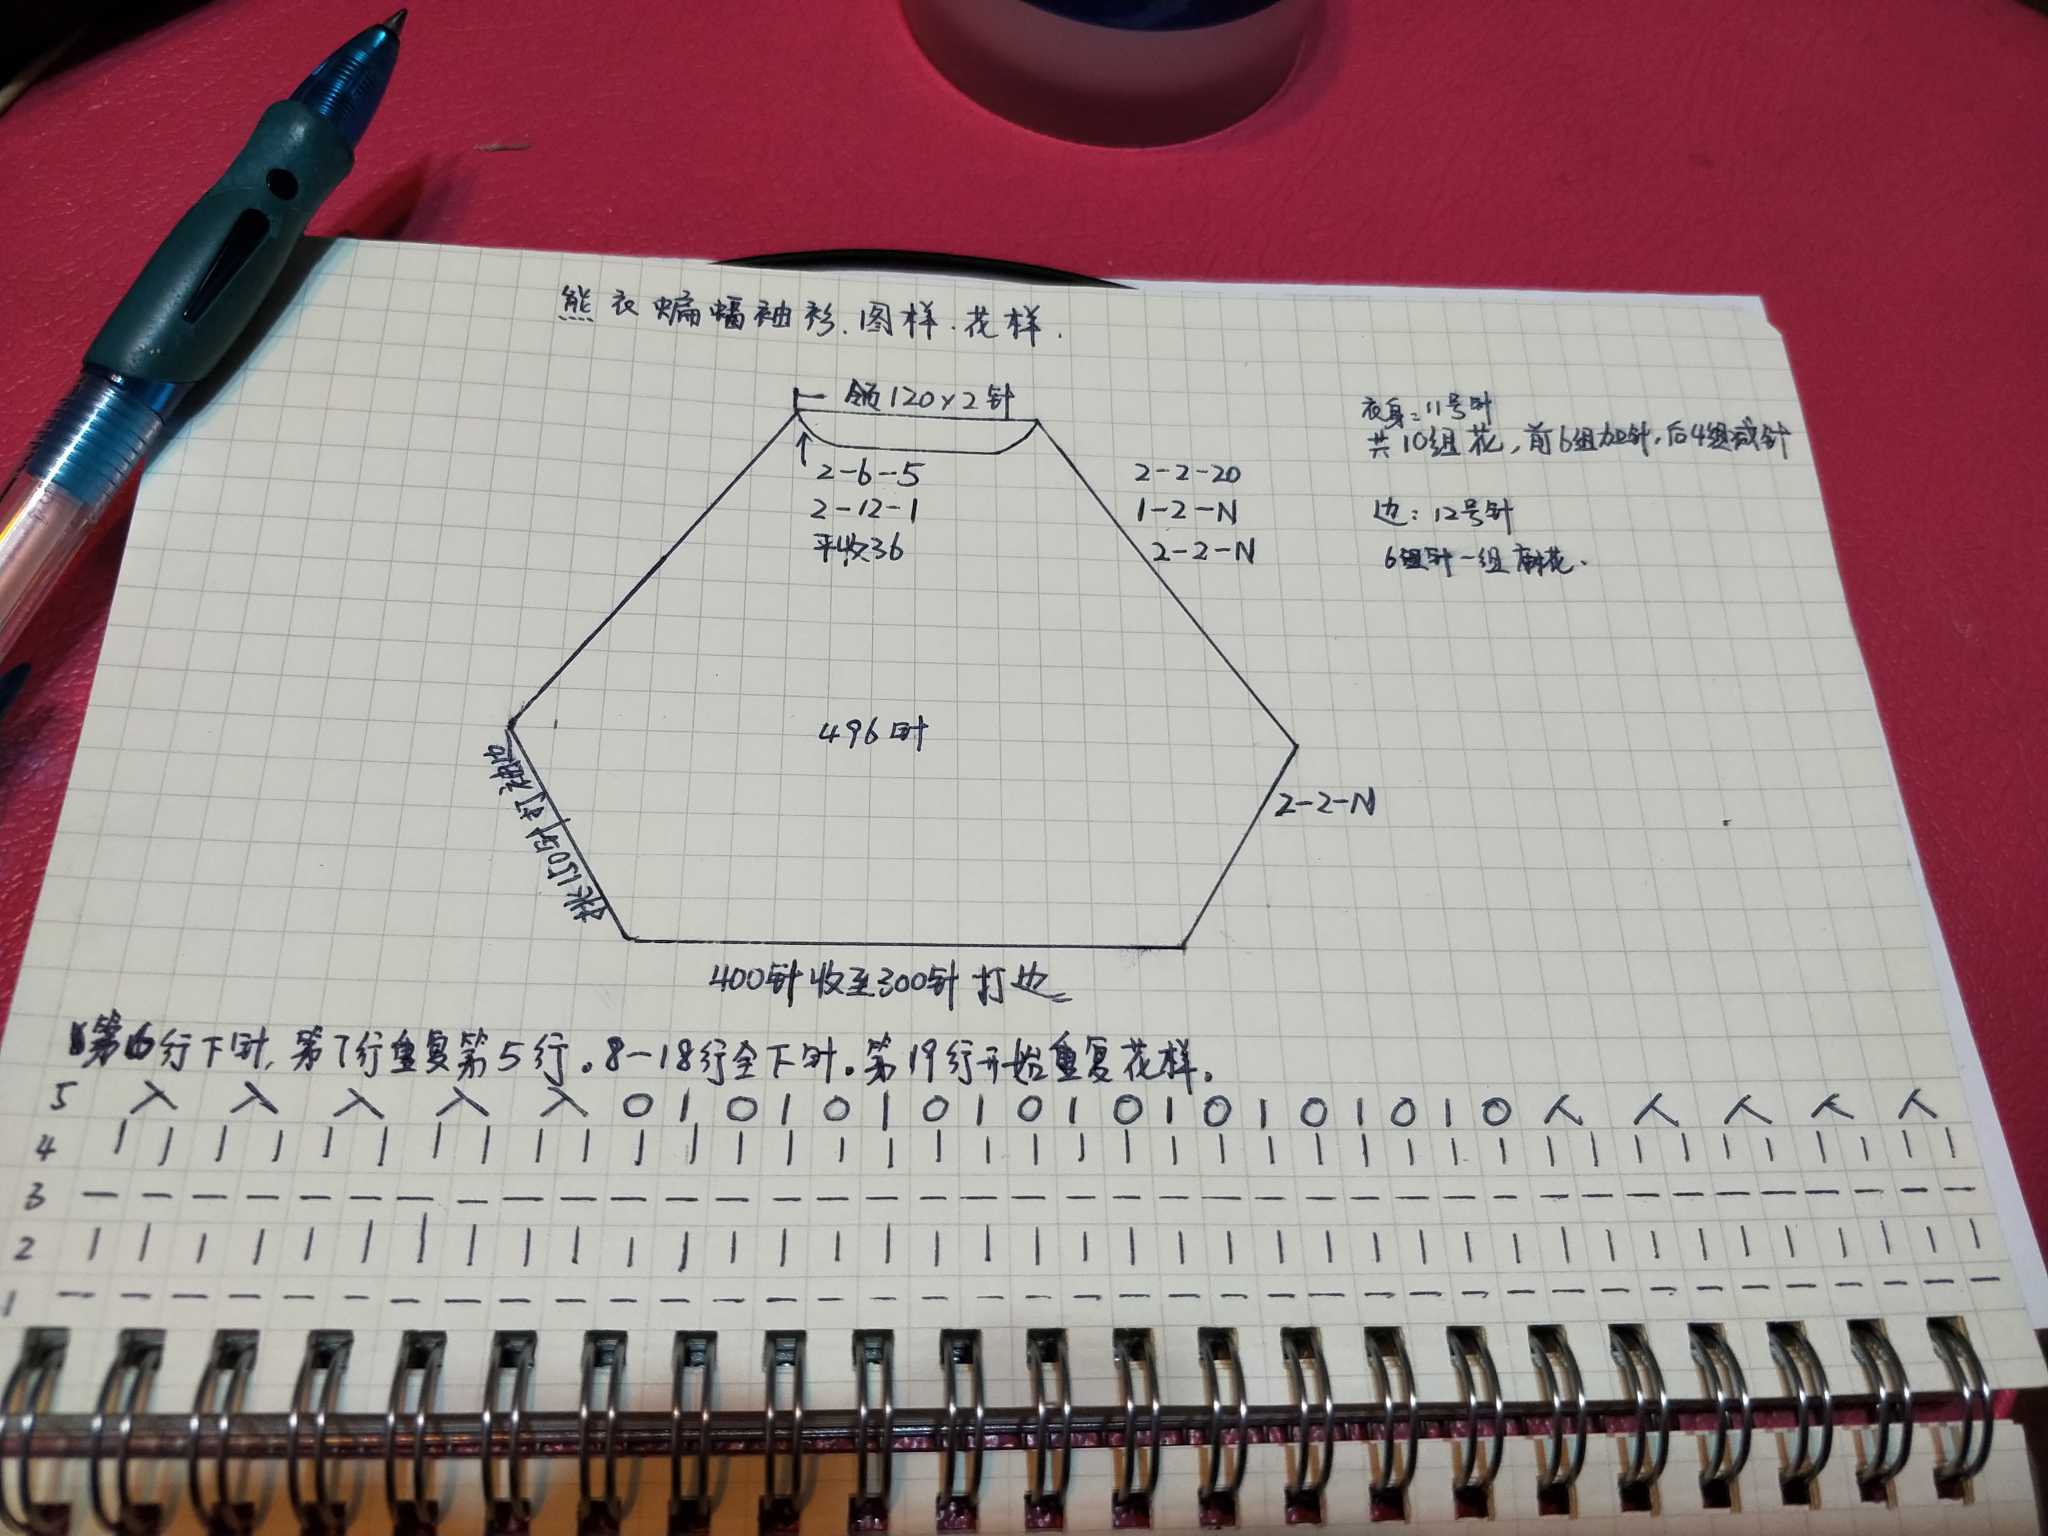 熊衣蝙蝠袖衫.图样.花样.
领120×2针
2-6-5
2-12-1
平收36
2-2-20
1-2-N
2-2-N
衣身:11号针
共10组花,前6组加针,后4组减针
边:12号针
6组针一组麻花.
496针
挑150针打袖边
2-2-N
400针收至300针打边
第6行下针,第7行重复第5行。8-18行全下针。第19行开始重复花样。
5 入 入 入 入 入 O | O | O | O | O | O | O | O | O | O 人 人 人 人 人
4 | | | | | | | | | | | | | | | | | | | | | | | | | | | | | | | | | | | | | | |
3 — — — — — — — — — — — — — — — — — — — — — — — — — — — — — — — — — — — — — — —
2 | | | | | | | | | | | | | | | | | | | | | | | | | | | | | | | | | | | | | | |
1 — — — — — — — — — — — — — — — — — — — — — — — — — — — — — — — — — — — — — — —